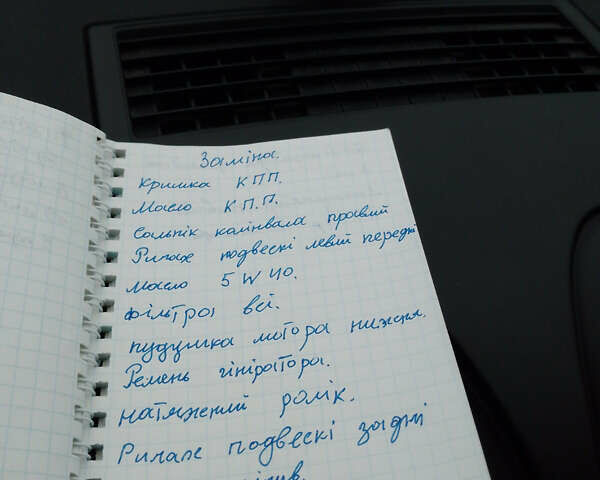 Заміна.
Кришка КПП.
Масло К.П.П.
Сальнік колінвала правий
Ричаг подвескі левий передні
Масло 5W40.
Фільтра всі.
пудушка мотора нижня.
Ремень гініратора.
натяжений ролік.
Ричаг подвескі задні